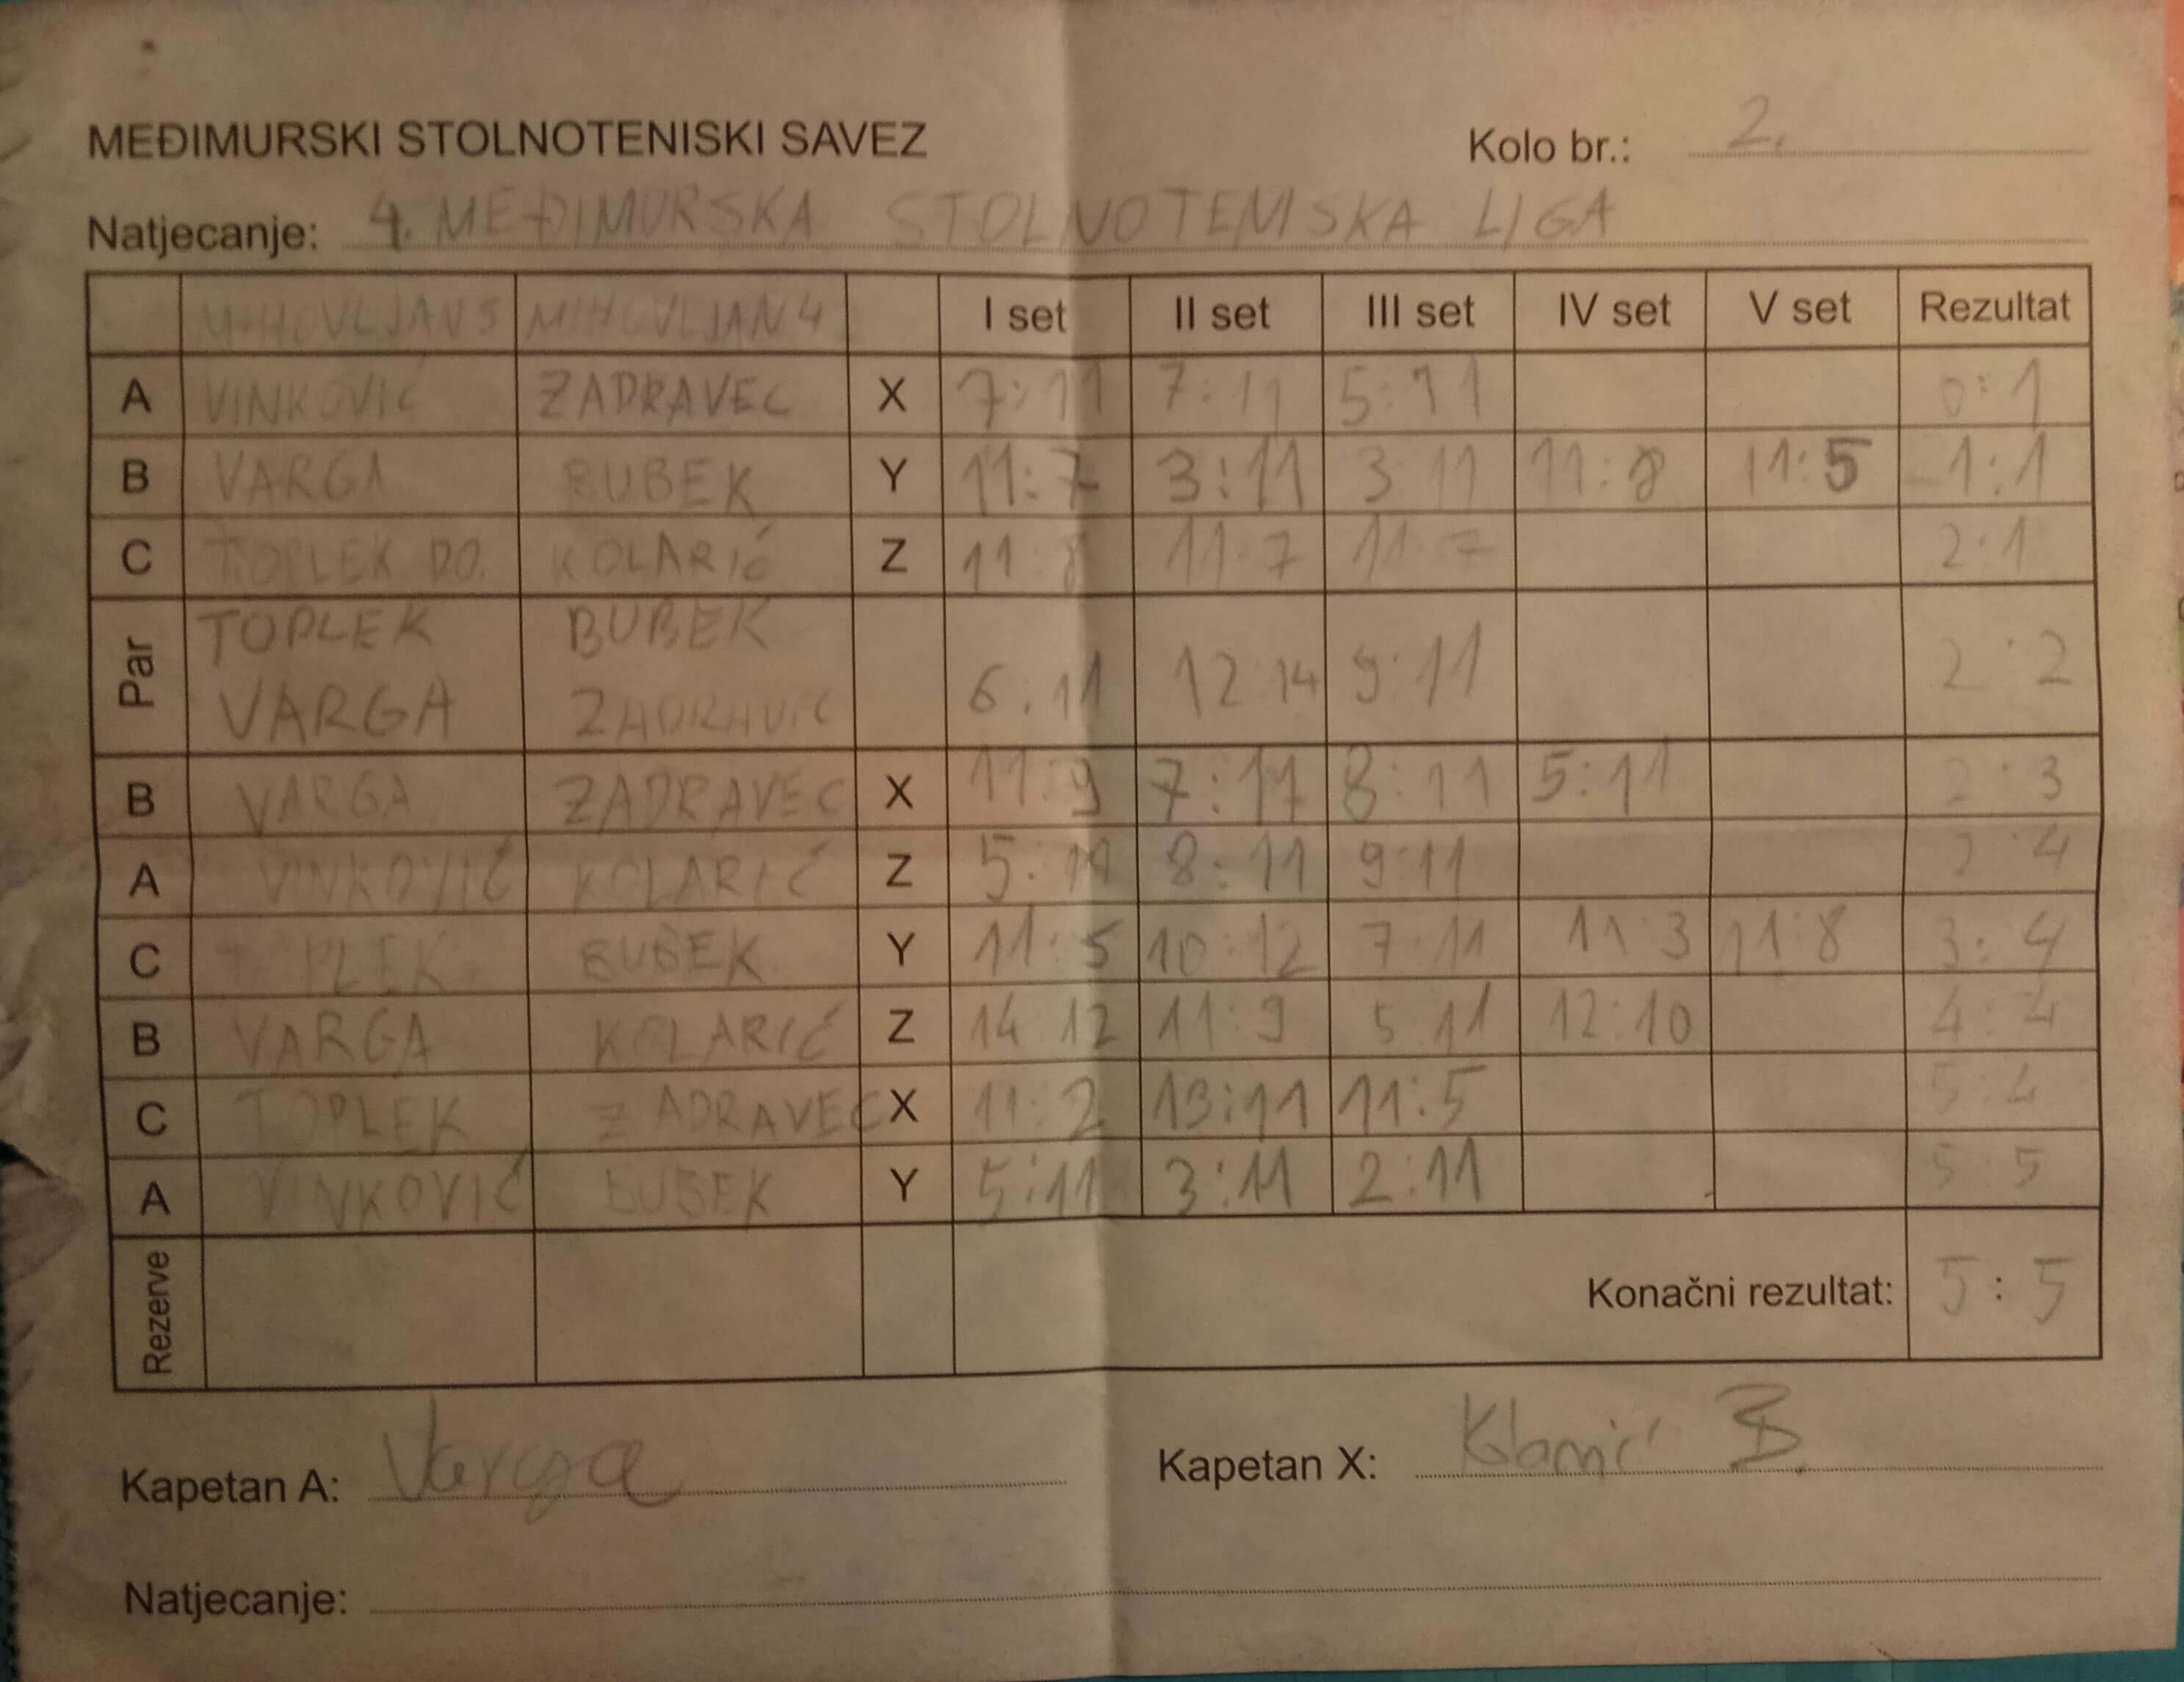 MEĐIMURSKI STOLNOTENISKI SAVEZ Kolo br.: 2.
Natjecanje: 4. MEĐIMURSKA STOLNOTENISKA LIGA
MIHOVLJAN 5 MIHOVLJAN 4 I set II set III set IV set V set Rezultat
A VINKOVIĆ ZADRAVEC X 7:11 7:11 5:11 0:1
B VARGA BUBEK Y 11:7 3:11 3:11 11:8 11:5 1:1
C TOPLEK DO. KOLARIĆ Z 11:8 11:7 11:7 2:1
TOPLEK BUBEK
Par 6:11 12:14 9:11 2:2
VARGA ZADRAVEC
B VARGA ZADRAVEC X 11:9 7:11 8:11 5:11 2:3
A VINKOVIĆ KOLARIĆ Z 5:11 8:11 9:11 2:4
C TOPLEK BUBEK Y 11:5 10:12 7:11 11:3 11:8 3:4
B VARGA KOLARIĆ Z 14:12 11:9 5:11 12:10 4:4
C TOPLEK ZADRAVEC X 11:2 13:11 11:5 5:4
A VINKOVIĆ BUBEK Y 5:11 3:11 2:11 5:5
Rezerve Konačni rezultat: 5:5
Kapetan A: Varga Kapetan X: B.
Natjecanje: